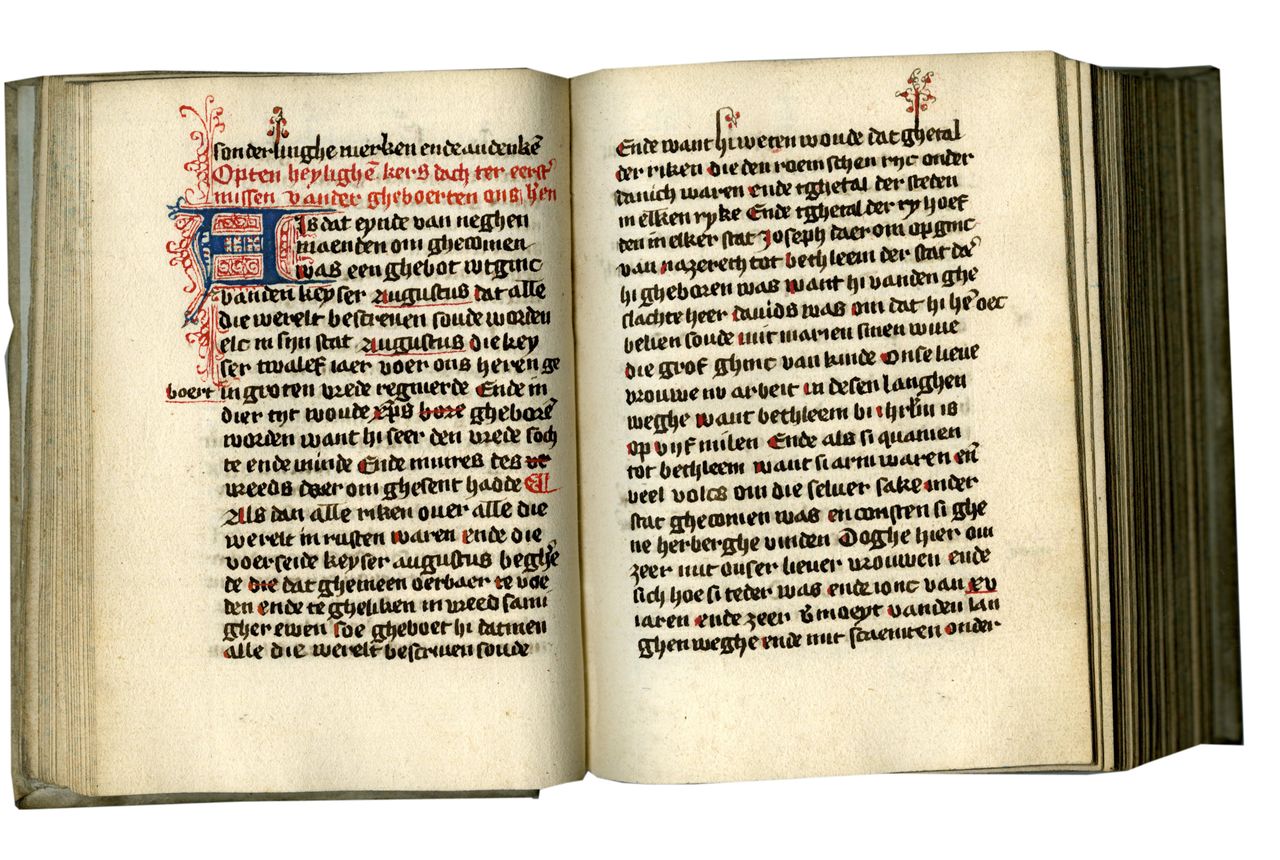 sonderlinghe merken ende andenkē
Opten heylighē kers dach ter eerst'
missen vander gheboerten ons hen
Als dat eynde van neghen
maenden om ghecomen
was een ghebot wtginc
vanden keyser augustus dat alle
die werelt bescreuen soude worden
elc in sijn stat augustus die key
ser twalef iaer voer ons heren ge
boert in groten vrede regnierde Ende in
dier tyt woude xp̄s bore gheborē
worden want hi seer den vrede soch
te ende minde Ende mitres des vr
vreeds daer om ghesent hadde
Als dan alle riken ouer alle die
werelt in rusten waren ende die
voerseide keyser augustus beghē
de die dat ghemeen oerbaer te voe
den ende te gheliken in vreed sami
gher ewen soe gheboet hi datmen
alle die werelt bescriuen soude
Ende want hi weten woude dat ghetal
der riken die den roemschen ryc onder
danich waren ende tghetal der steden
in elken ryke Ende tghetal der ty hoef
den in elker stat Joseph daer om op ginc
van nazereth tot bethleem der stat da'
hi gheboren was want hi vanden ghe
slachte heer dauids was om dat hi he' oec
belien soude mit marien sinen wiue
die grof ghinc van kinde Onse lieue
vrouwe nv arbeit in desen langhen
weghe want bethleem bi ihrl'm is
op vijf milen Ende als si quamen
tot bethleem want si arm waren en̄
veel volcs om die seluer sake inder
stat ghecomen was en consten si ghe
ne herberghe vinden Doghe hier om
zeer mit onser lieuer vrouwen ende
sich hoe si teder was ende ionc van xv
iaren ende zeer v'moeyt vanden lan
ghen weghe ende mit scaemten onder